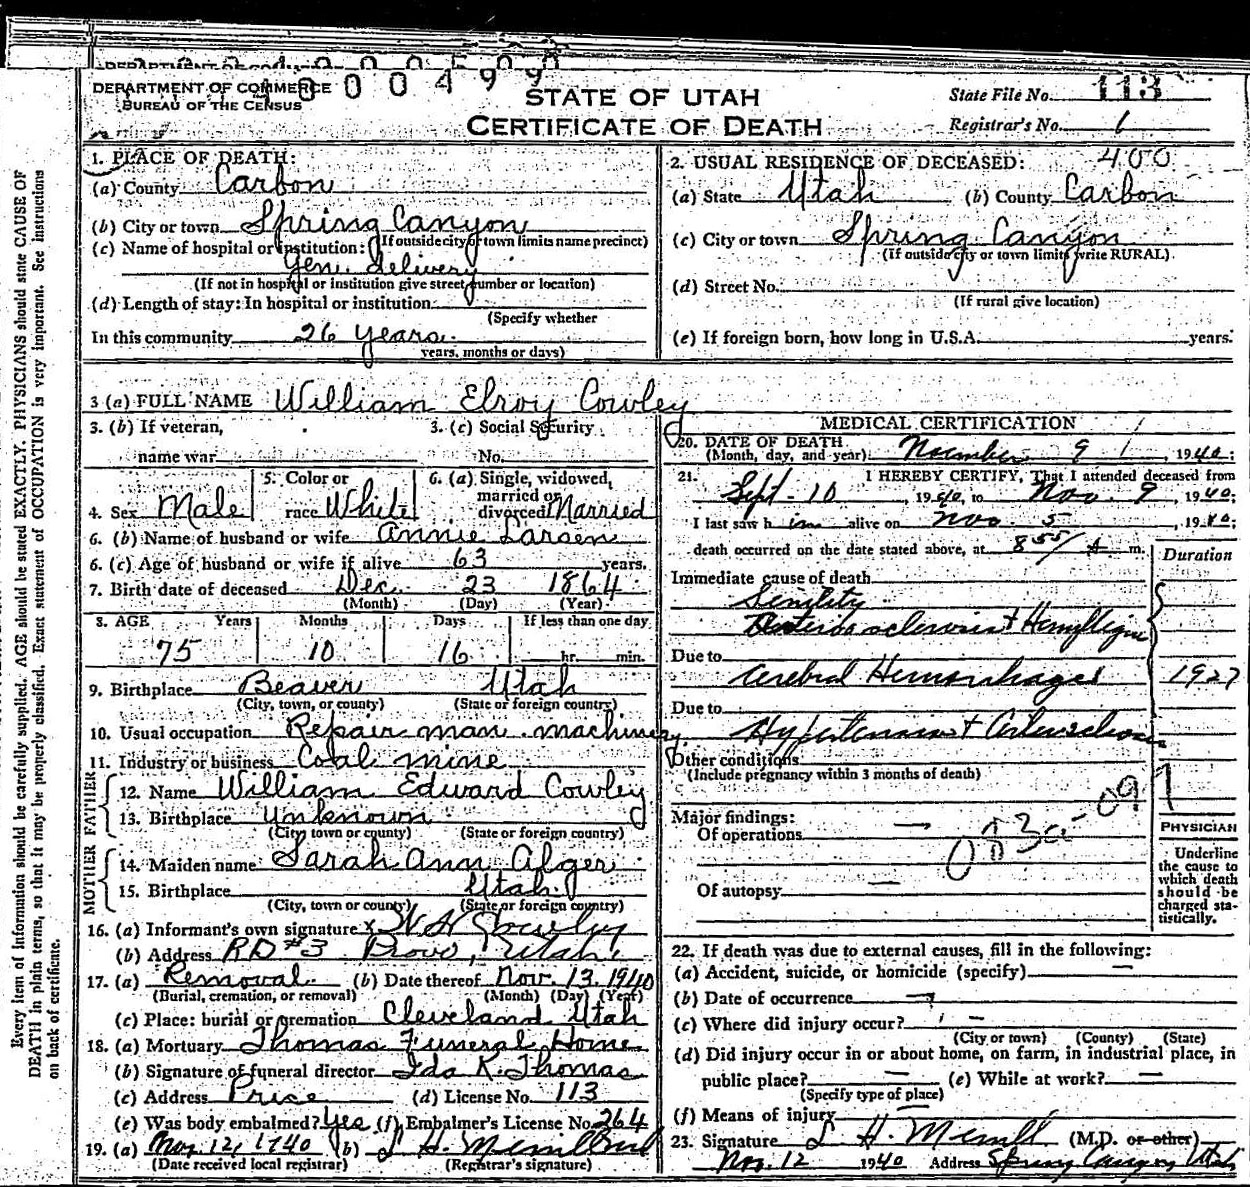 DEPARTMENT OF COMMERCE
BUREAU OF THE CENSUS
STATE OF UTAH
CERTIFICATE OF DEATH
State File No. 113
Registrar's No. 1
1. PLACE OF DEATH:
(a) County Carbon
(b) City or town Spring Canyon
(If outside city or town limits name precinct)
(c) Name of hospital or institution:
Gen. delivery
(If not in hospital or institution give street number or location)
(d) Length of stay: In hospital or institution
(Specify whether
In this community 26 years.
years, months or days)
2. USUAL RESIDENCE OF DECEASED: 400
(a) State Utah (b) County Carbon
(c) City or town Spring Canyon
(If outside city or town limits write RURAL)
(d) Street No.
(If rural give location)
(e) If foreign born, how long in U.S.A. years.
3 (a) FULL NAME William Elroy Cowley
3. (b) If veteran,
name war
3. (c) Social Security
No.
4. Sex Male
5. Color or
race White
6. (a) Single, widowed,
married or
divorced Married
6. (b) Name of husband or wife Annie Larsen
6. (c) Age of husband or wife if alive 63 years.
7. Birth date of deceased Dec. 23 1864
(Month) (Day) (Year)
8. AGE Years Months Days If less than one day
75 10 16 hr. min.
9. Birthplace Beaver Utah
(City, town, or county) (State or foreign country)
10. Usual occupation Repair man machinery
11. Industry or business Coal mine
FATHER
12. Name William Edward Cowley
13. Birthplace Unknown
(City town or county) (State or foreign country)
MOTHER
14. Maiden name Sarah Ann Alger
15. Birthplace Utah
(City, town or county) (State or foreign country)
16. (a) Informant's own signature x Cowley
(b) Address RD #3 Provo, Utah.
17. (a) Removal (b) Date thereof Nov. 13. 1940
(Burial, cremation, or removal) (Month) (Day) (Year)
(c) Place: burial or cremation Cleveland Utah
18. (a) Mortuary Thomas Funeral Home
(b) Signature of funeral director Ida K. Thomas
(c) Address Price (d) License No. 113
(e) Was body embalmed? Yes (f) Embalmer's License No. 264
19. (a) Nov. 12, 1940 (b) L H. Merrill
(Date received local registrar) (Registrar's signature)
MEDICAL CERTIFICATION
20. DATE OF DEATH
(Month, day, and year) November 9, 1940;
21. I HEREBY CERTIFY, That I attended deceased from
Sept - 10, 1940, to Nov. 9, 1940;
I last saw him alive on Nov. 5, 1940;
death occurred on the date stated above, at 8 55/ A m.
Duration
Immediate cause of death
Senility
Arteriosclerosis + Hemiplegia
Due to
Cerebral Hemorrhages 1927
Due to
Hypertension + Arteriosclerosis
Other conditions
(Include pregnancy within 3 months of death)
Major findings:
Of operations —
Of autopsy —
PHYSICIAN
Underline
the cause to
which death
should be
charged sta-
tistically.
22. If death was due to external causes, fill in the following:
(a) Accident, suicide, or homicide (specify) —
(b) Date of occurrence —
(c) Where did injury occur? —
(City or town) (County) (State)
(d) Did injury occur in or about home, on farm, in industrial place, in
public place? — (e) While at work? —
(Specify type of place)
(f) Means of injury —
23. Signature L H. Merrill (M.D. or other)
Nov. 12 1940 Address Spring Canyon, Utah
Every item of information should be carefully supplied. AGE should be stated EXACTLY. PHYSICIANS should state CAUSE OF
DEATH in plain terms, so that it may be properly classified. Exact statement of OCCUPATION is very important. See instructions
on back of certificate.